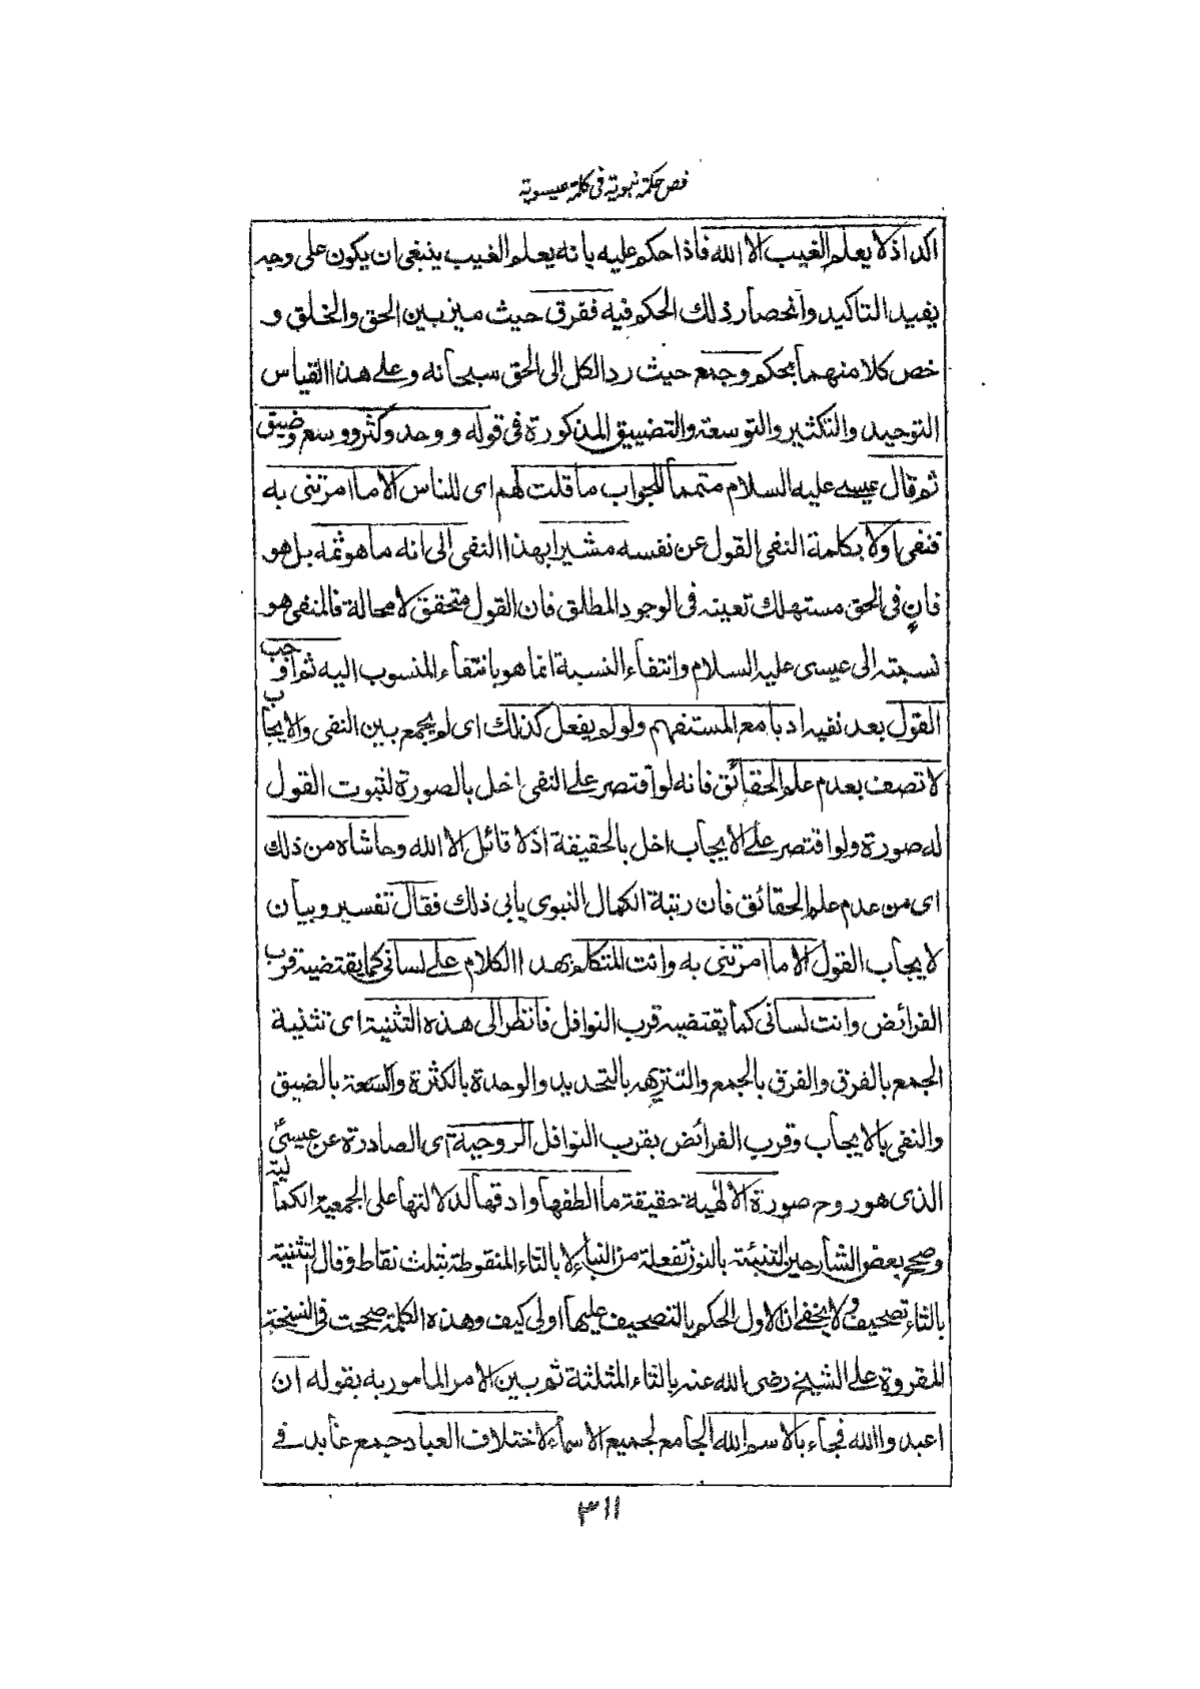 فص حكمة نبوية فى كلمة عيسوية
اكد اذ لا يعلم الغيب الا الله فاذا حكم عليه بانه يعلم الغيب ينبغى ان يكون على وجه
يفيد التاكيد وانحصار ذلك الحكم فيه ففرق حيث ميز بين الحق والخلق و
خص كلا منهما بحكم وجمع حيث رد الكل الى الحق سبحانه وعلى هذا القياس
التوحيد والتكثير والتوسعة والتضييق المذكورة فى قوله ووحد وكثر ووسع وضيق
ثم قال عيسى عليه السلام متمما للجواب ما قلت لهم اى للناس الا ما امرتنى به
فنفى اولا بكلمة النفى القول عن نفسه مشيرا بهذا النفى الى انه ما هو ثمه بل هو
فانٍ فى الحق مستهلك تعينه فى الوجود المطلق فان القول متحقق لا محالة فالمنفى هو
نسبته الى عيسى عليه السلام وانتفاء النسبة انما هو بانتفاء المنسوب اليه ثم اوجب
القول بعد نفيه ادبا مع المستفهم ولو لم يفعل كذلك اى لم يجمع بين النفى والايجاب
لاتصف بعدم علم الحقائق فانه لو اقتصر على النفى اخل بالصورة لثبوت القول
له صورة ولو اقتصر على الايجاب اخل بالحقيقة اذ لا قائل الا الله وحاشاه من ذلك
اى من عدم علم الحقائق فان رتبة الكمال النبوى يابى ذلك فقال تفسير وبيان
لايجاب القول الا ما امرتنى به وانت المتكلم بهذا الكلام على لسانى كما يقتضيه قرب
الفرائض وانت لسانى كما يقتضيه قرب النوافل فانظر الى هذه التثنية اى تثنية
الجمع بالفرق والفرق بالجمع والتنزيه بالتحديد والوحدة بالكثرة والسعة بالضيق
والنفى بالايجاب وقرب الفرائض بقرب النوافل الروحية اى الصادرة عن عيسىٰؑ
الذى هو روح صورة الالٰهية حقيقة ما الطفها وادقها لدلالتها على الجمعية الكمالية
وصحح بعض الشارحين التنبئة بالنون تفعلة من النباء لا بالثاء المنقوطة بثلث نقاط وقال التثنية
بالثاء تصحيف ولا يخفى ان الاول الحكم بالتصحيف عليها اولى كيف وهذه الكلمة صححت فى النسخة
المقروة على الشيخ رضى الله عنه بالثاء المثلثة ثم بين الامر المامور به بقوله ان
اعبدوا الله فجاء بالاسم الله الجامع لجميع الاسماء لاختلاف العباد جمع عابد فى
٣١١